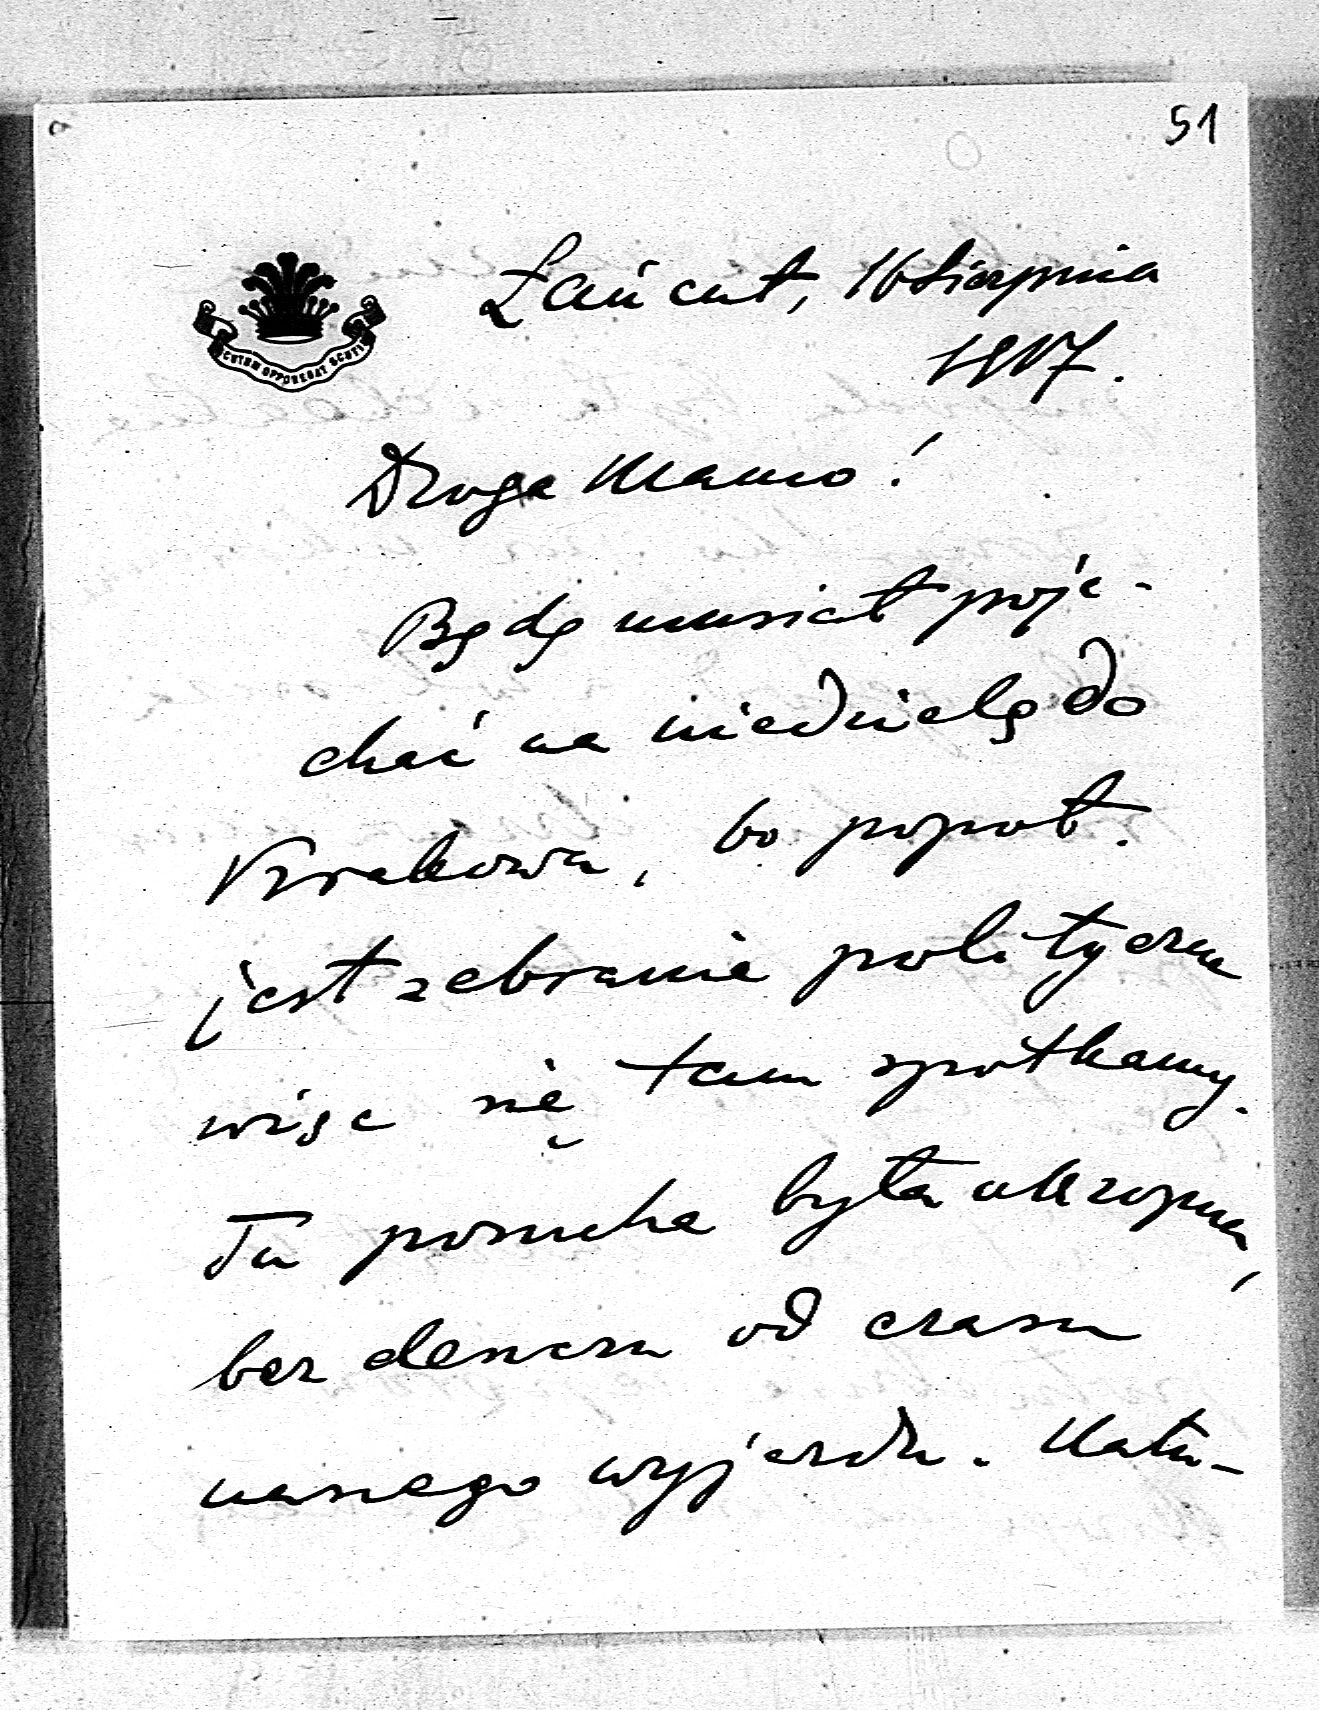 51
SCUTUM OPPONEBAT SCUTIS
Łańcut, 16 sierpnia
1917.
Droga Mamo!
Będę musiał poje-
chać na niedzielę do
Krakowa, bo popoł.
jest zebranie polityczne
więc się tam spotkamy.
Tu posucha była okropna,
bez deszczu od czasu
naszego wyjazdu. Natu-